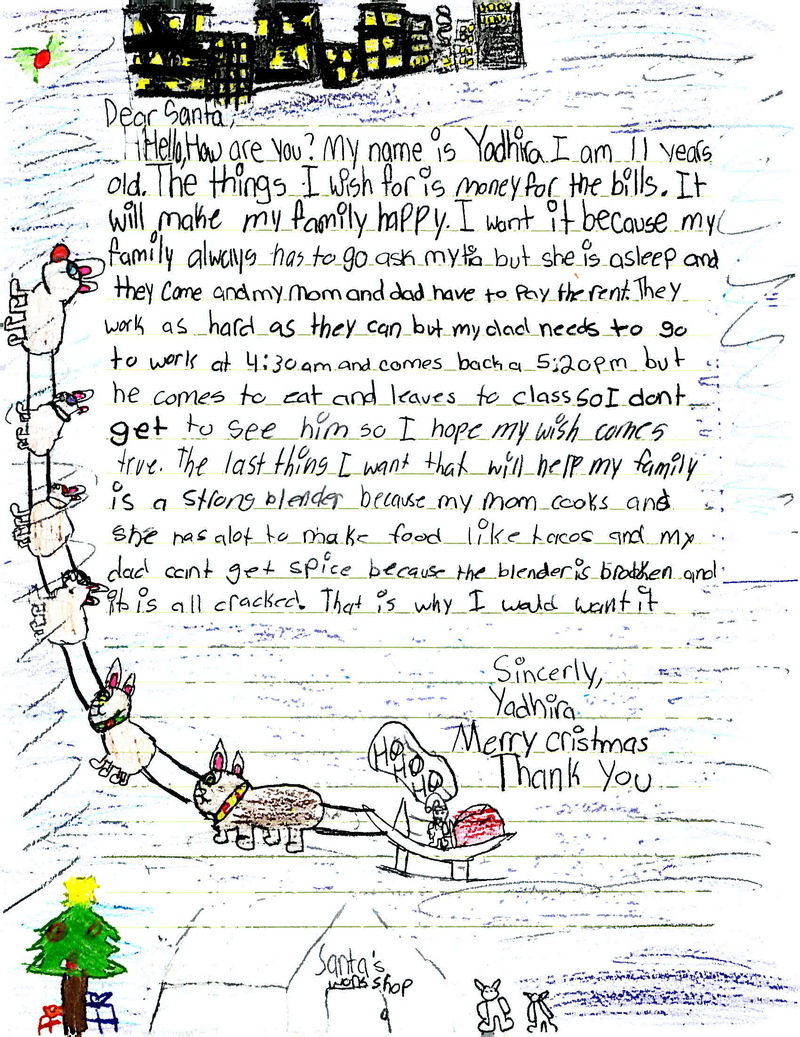 Dear Santa,
Hello, How are you? My name is Yadhira I am 11 years
old. The things I wish for is money for the bills. It
will make my family happy. I want it because my
family always has to go ask my tia but she is asleep and
they come and my mom and dad have to pay the rent. They
work as hard as they can but my dad needs to go
to work at 4:30 am and comes back a 5:20pm but
he comes to eat and leaves to class so I dont
get to see him so I hope my wish comes
true. The last thing I want that will help my family
is a strong blender because my mom cooks and
she has alot to make food like tacos and my
dad cant get spice because the blender is brocken and
it is all cracked. That is why I would want it
Sincerly,
Yadhira
Merry cristmas
Thank You
HO
HO
HO
Santa's
workshop